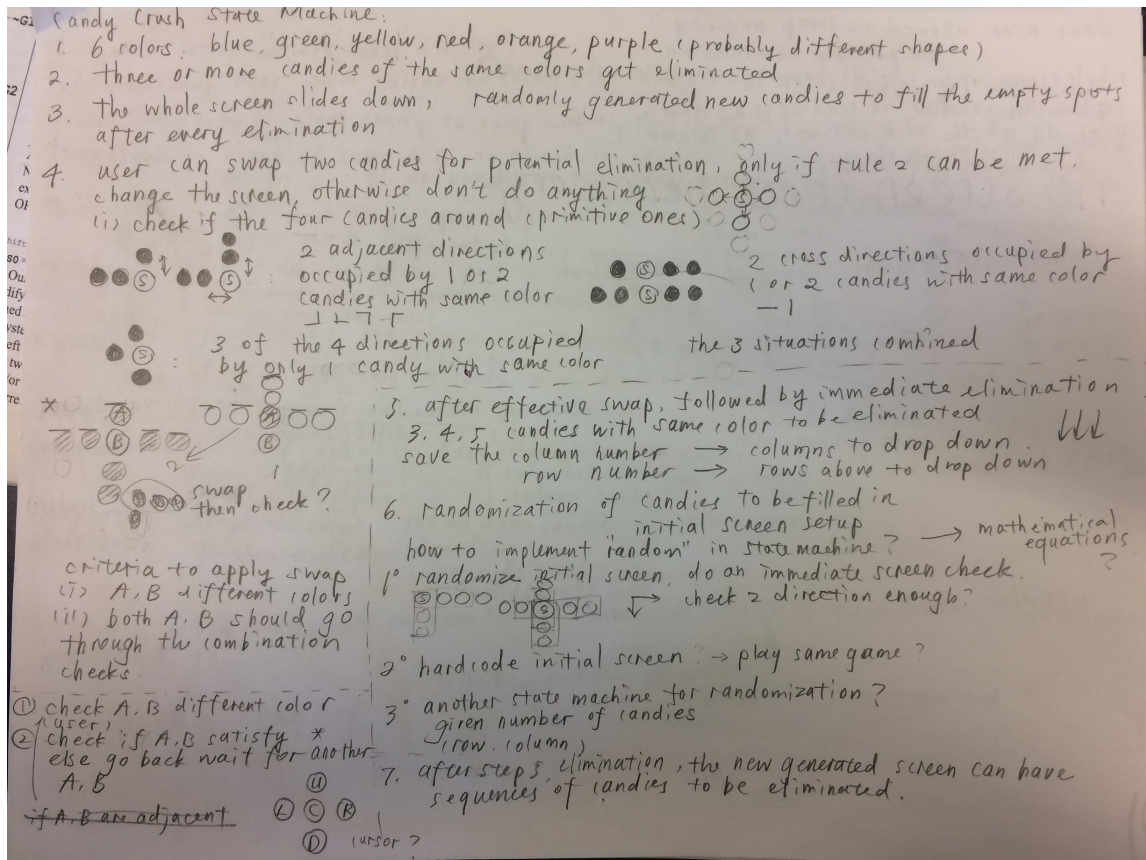 Candy Crush State Machine:
1. 6 colors. blue, green, yellow, red, orange, purple (probably different shapes)
2. three or more candies of the same colors get eliminated
3. the whole screen slides down, randomly generated new candies to fill the empty spots
after every elimination
4. user can swap two candies for potential elimination, only if rule 2 can be met.
change the screen, otherwise don't do anything
(i) check if the four candies around (primitive ones)
S
S S
2 adjacent directions
occupied by 1 or 2
candies with same color
S
S
2 cross directions occupied by
1 or 2 candies with same color
S
3 of the 4 directions occupied
by only 1 candy with same color
the 3 situations combined
*
A
B
A
B
2
1
swap
then check?
criteria to apply swap
(i) A, B different colors
(ii) both A. B should go
through the combination
checks.
① check A, B different color
(user)
② check if A, B satisfy *
else go back wait for another
A, B
if A, B are adjacent
U
L C R
D
cursor?
5. after effective swap, followed by immediate elimination
3, 4, 5 candies with same color to be eliminated
save the column number → columns to drop down.
row number → rows above to drop down
6. randomization of candies to be filled in
initial screen setup
how to implement "random" in state machine? → mathematical
equations
?
1° randomize initial screen, do an immediate screen check.
S
S
check 2 direction enough?
2° hardcode initial screen? → play same game?
3° another state machine for randomization?
given number of candies
(row, column)
7. after step 5, elimination, the new generated screen can have
sequences of candies to be eliminated.
~G2
G2